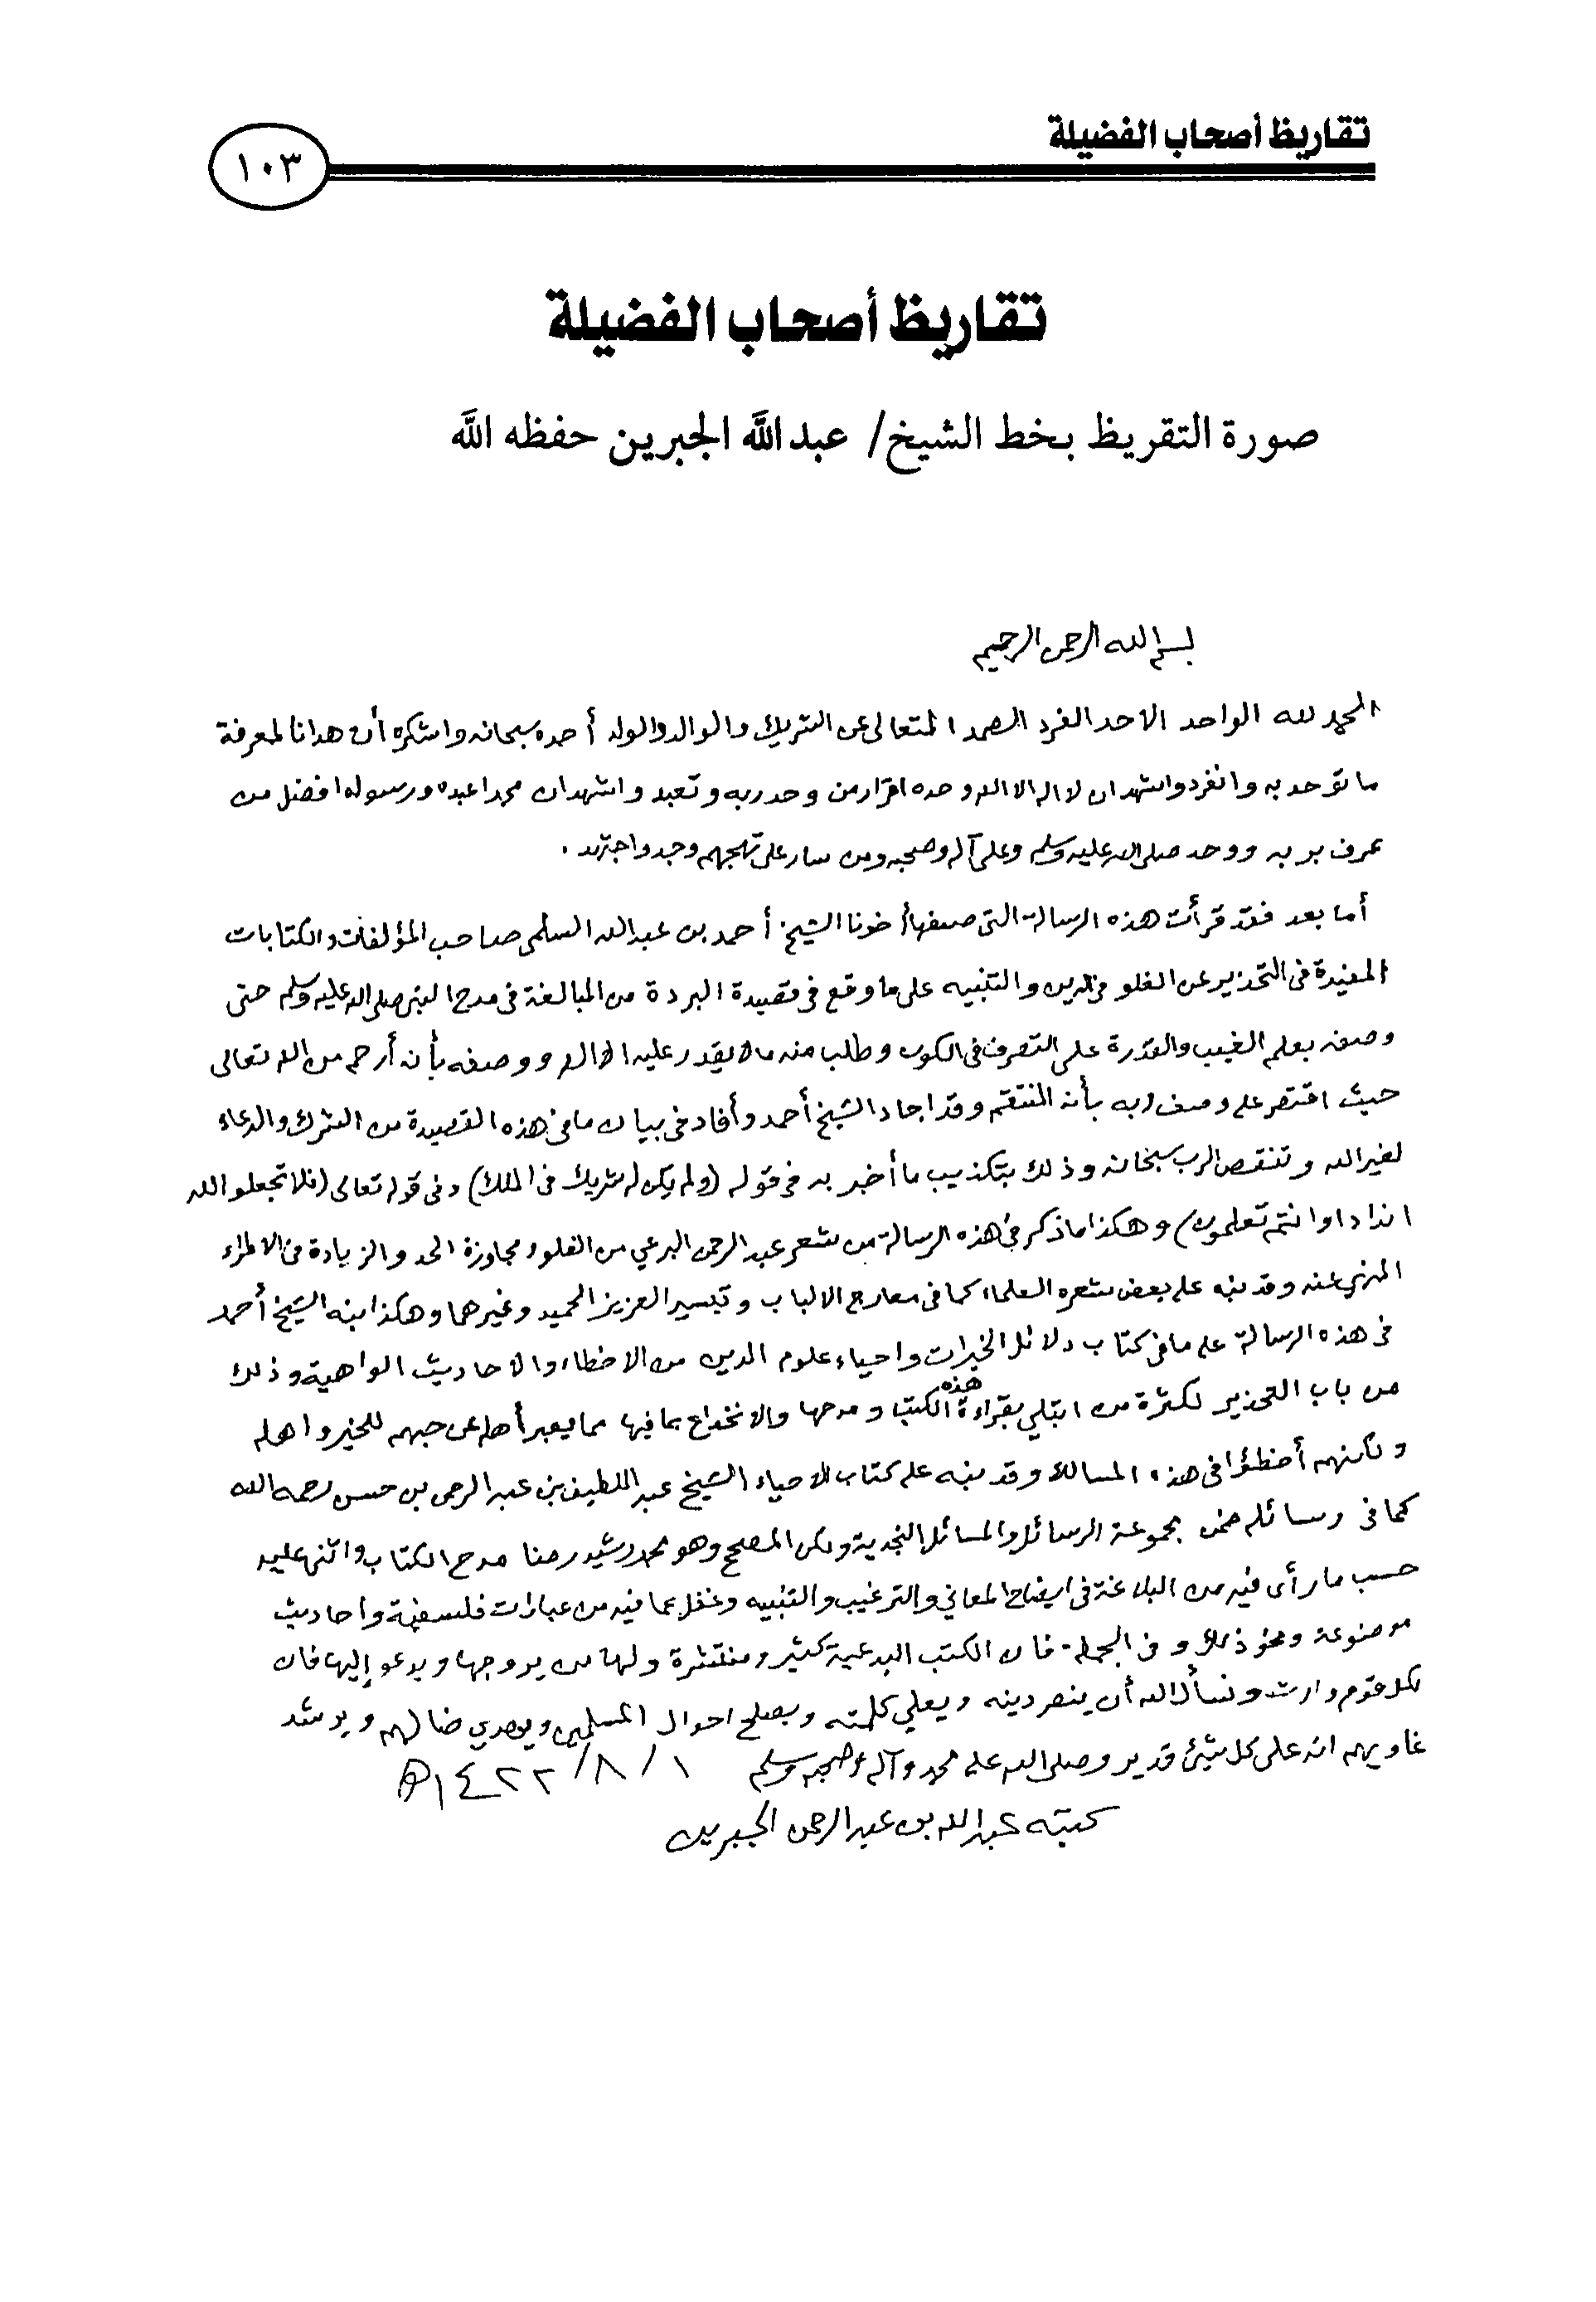 تقاريظ أصحاب الفضيلة
١٠٣
تقاريظ أصحاب الفضيلة
صورة التقريظ بخط الشيخ/ عبد الله الجبرين حفظه الله
بسم الله الرحمن الرحيم
الحمد لله الواحد الاحد الفرد الصمد المتعالى عن الشريك والوالد والولد أحمده سبحانه واشكره أن هدانا لمعرفة
ما توحد به وانفرد واشهد ان لا اله الا الله وحده اقرار من وحد ربه وتعبد واشهد ان محمدا عبده ورسوله افضل من
عرف بربه ووحد صلى الله عليه وسلم وعلى آله وصحبه ومن سار على نهجهم وجد واجتهد .
أما بعد فقد قرأت هذه الرسالة التى صنفها أخونا الشيخ أحمد بن عبد الله السلمى صاحب المؤلفات والكتابات
المفيدة فى التحذير عن الغلو فى الدين والتنبيه على ما وقع فى قصيدة البردة من المبالغة فى مدح النبى صلى الله عليه وسلم حتى
وصفه بعلم الغيب والقدرة على التصرف فى الكون وطلب منه مالا يقدر عليه الا الله ووصفه بأنه أرحم من الله تعالى
حيث اقتصر على وصف ربه بأنه المنتقم وقد اجاد الشيخ أحمد وأفاد فى بيان ما فى هذه القصيدة من الشرك والدعاء
لغير الله وتنقص الرب سبحانه وذلك بتكذيب ما أخبر به فى قوله (ولم يكن له شريك فى الملك) وفى قوله تعالى (فلا تجعلوا لله
اندادا وانتم تعلمون) وهكذا ما ذكر فى هذه الرسالة من شعر عبد الرحمن البرعي من الغلو ومجاوزة الحد والزيادة فى الاطراء
المنهي عنه وقد نبه على بعض شعره العلماء كما فى معارج الالباب وتيسير العزيز الحميد وغيرهما وهكذا نبه الشيخ أحمد
فى هذه الرسالة على ما فى كتاب دلائل الخيرات واحياء علوم الدين من الاخطاء والاحاديث الواهية وذلك
من باب التحذير لكثرة من ابتلي بقراءة هذه الكتب ومدحها والانخداع بما فيها مما يعبر أهله عن حبهم للخير واهله
ولكنهم أخطؤا فى هذه المسالك وقد نبه على كتاب الاحياء الشيخ عبد اللطيف بن عبد الرحمن بن حسن رحمه الله
كما فى رسائله ضمن مجموعة الرسائل والمسائل النجدية ولكن المصحح وهو محمد رشيد رضا مدح الكتاب واثنى عليه
حسب ما رأى فيه من البلاغة فى ايضاح المعاني والترغيب والتنبيه وغفل عما فيه من عبارات فلسفية واحاديث
موضوعة ونحو ذلك وفى الجملة فان الكتب البدعية كثير ومنتشرة ولها من يروجها ويدعو إليها فان
لكل قوم وارث ونسأل الله أن ينصر دينه ويعلي كلمته ويصلح احوال المسلمين ويهدي ضالهم ويرشد
غاويهم انه على كل شيئ قدير وصلى الله على محمد وآله وصحبه وسلم ١/٨/١٤٢٢هـ
كتبه عبد الله بن عبد الرحمن الجبرين